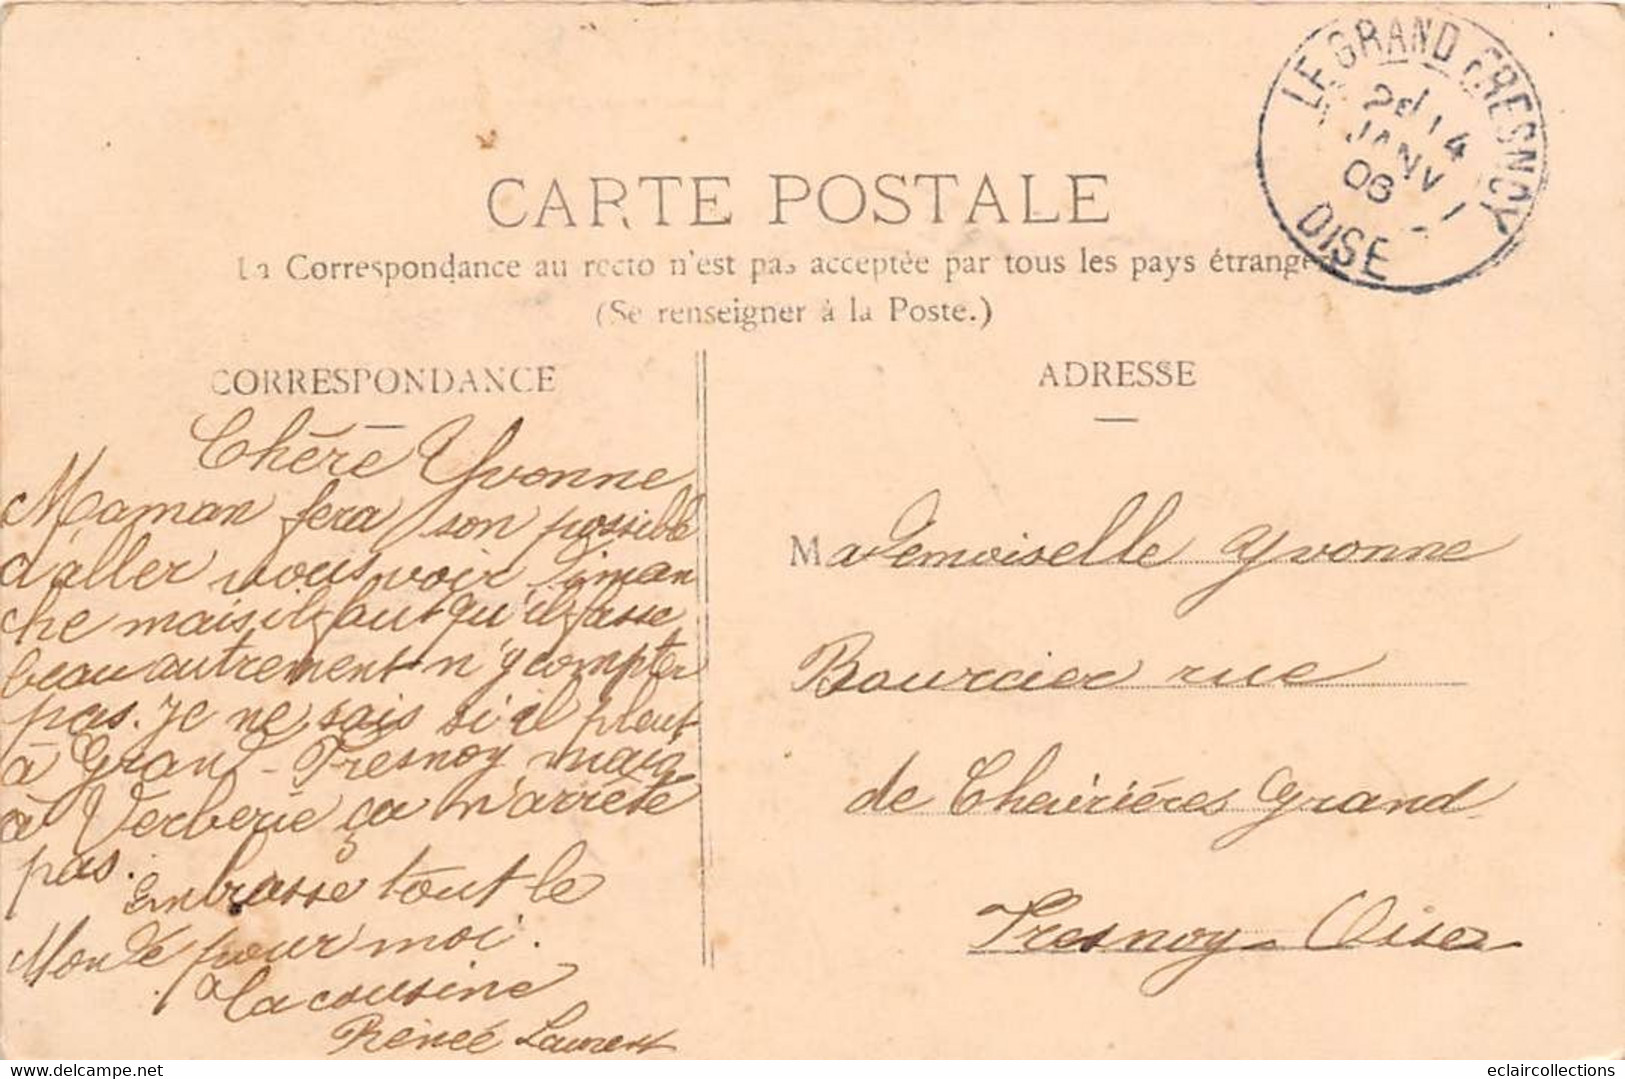 LE GRAND FRESNOY
14
JANV
08
OISE
CARTE POSTALE
La Correspondance au recto n'est pas acceptée par tous les pays étrange
(Se renseigner à la Poste.)
CORRESPONDANCE
Chère Yvonne
Maman fera son possible
d'aller vous voir diman
che mais il faut qu'il fasse
beau autrement n'y compter
pas. Je ne sais si il pleut
à Grand-Fresnoy mais
à Verberie ça n'arrête
pas.
Embrasse tout le
Monde pour moi.
Ta cousine
Renée Laurent
ADRESSE
Mademoiselle Yvonne
Bourcier rue
de Chevrières Grand
Fresnoy - Oise
eclaircollections